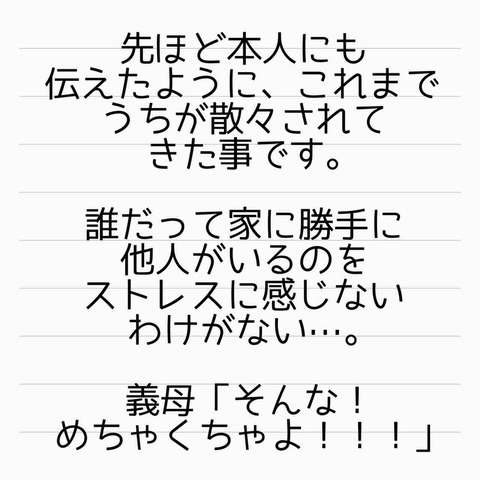 先ほど本人にも
伝えたように、これまで
うちが散々されて
きた事です。
誰だって家に勝手に
他人がいるのを
ストレスに感じない
わけがない…。
義母「そんな！
めちゃくちゃよ！！！」